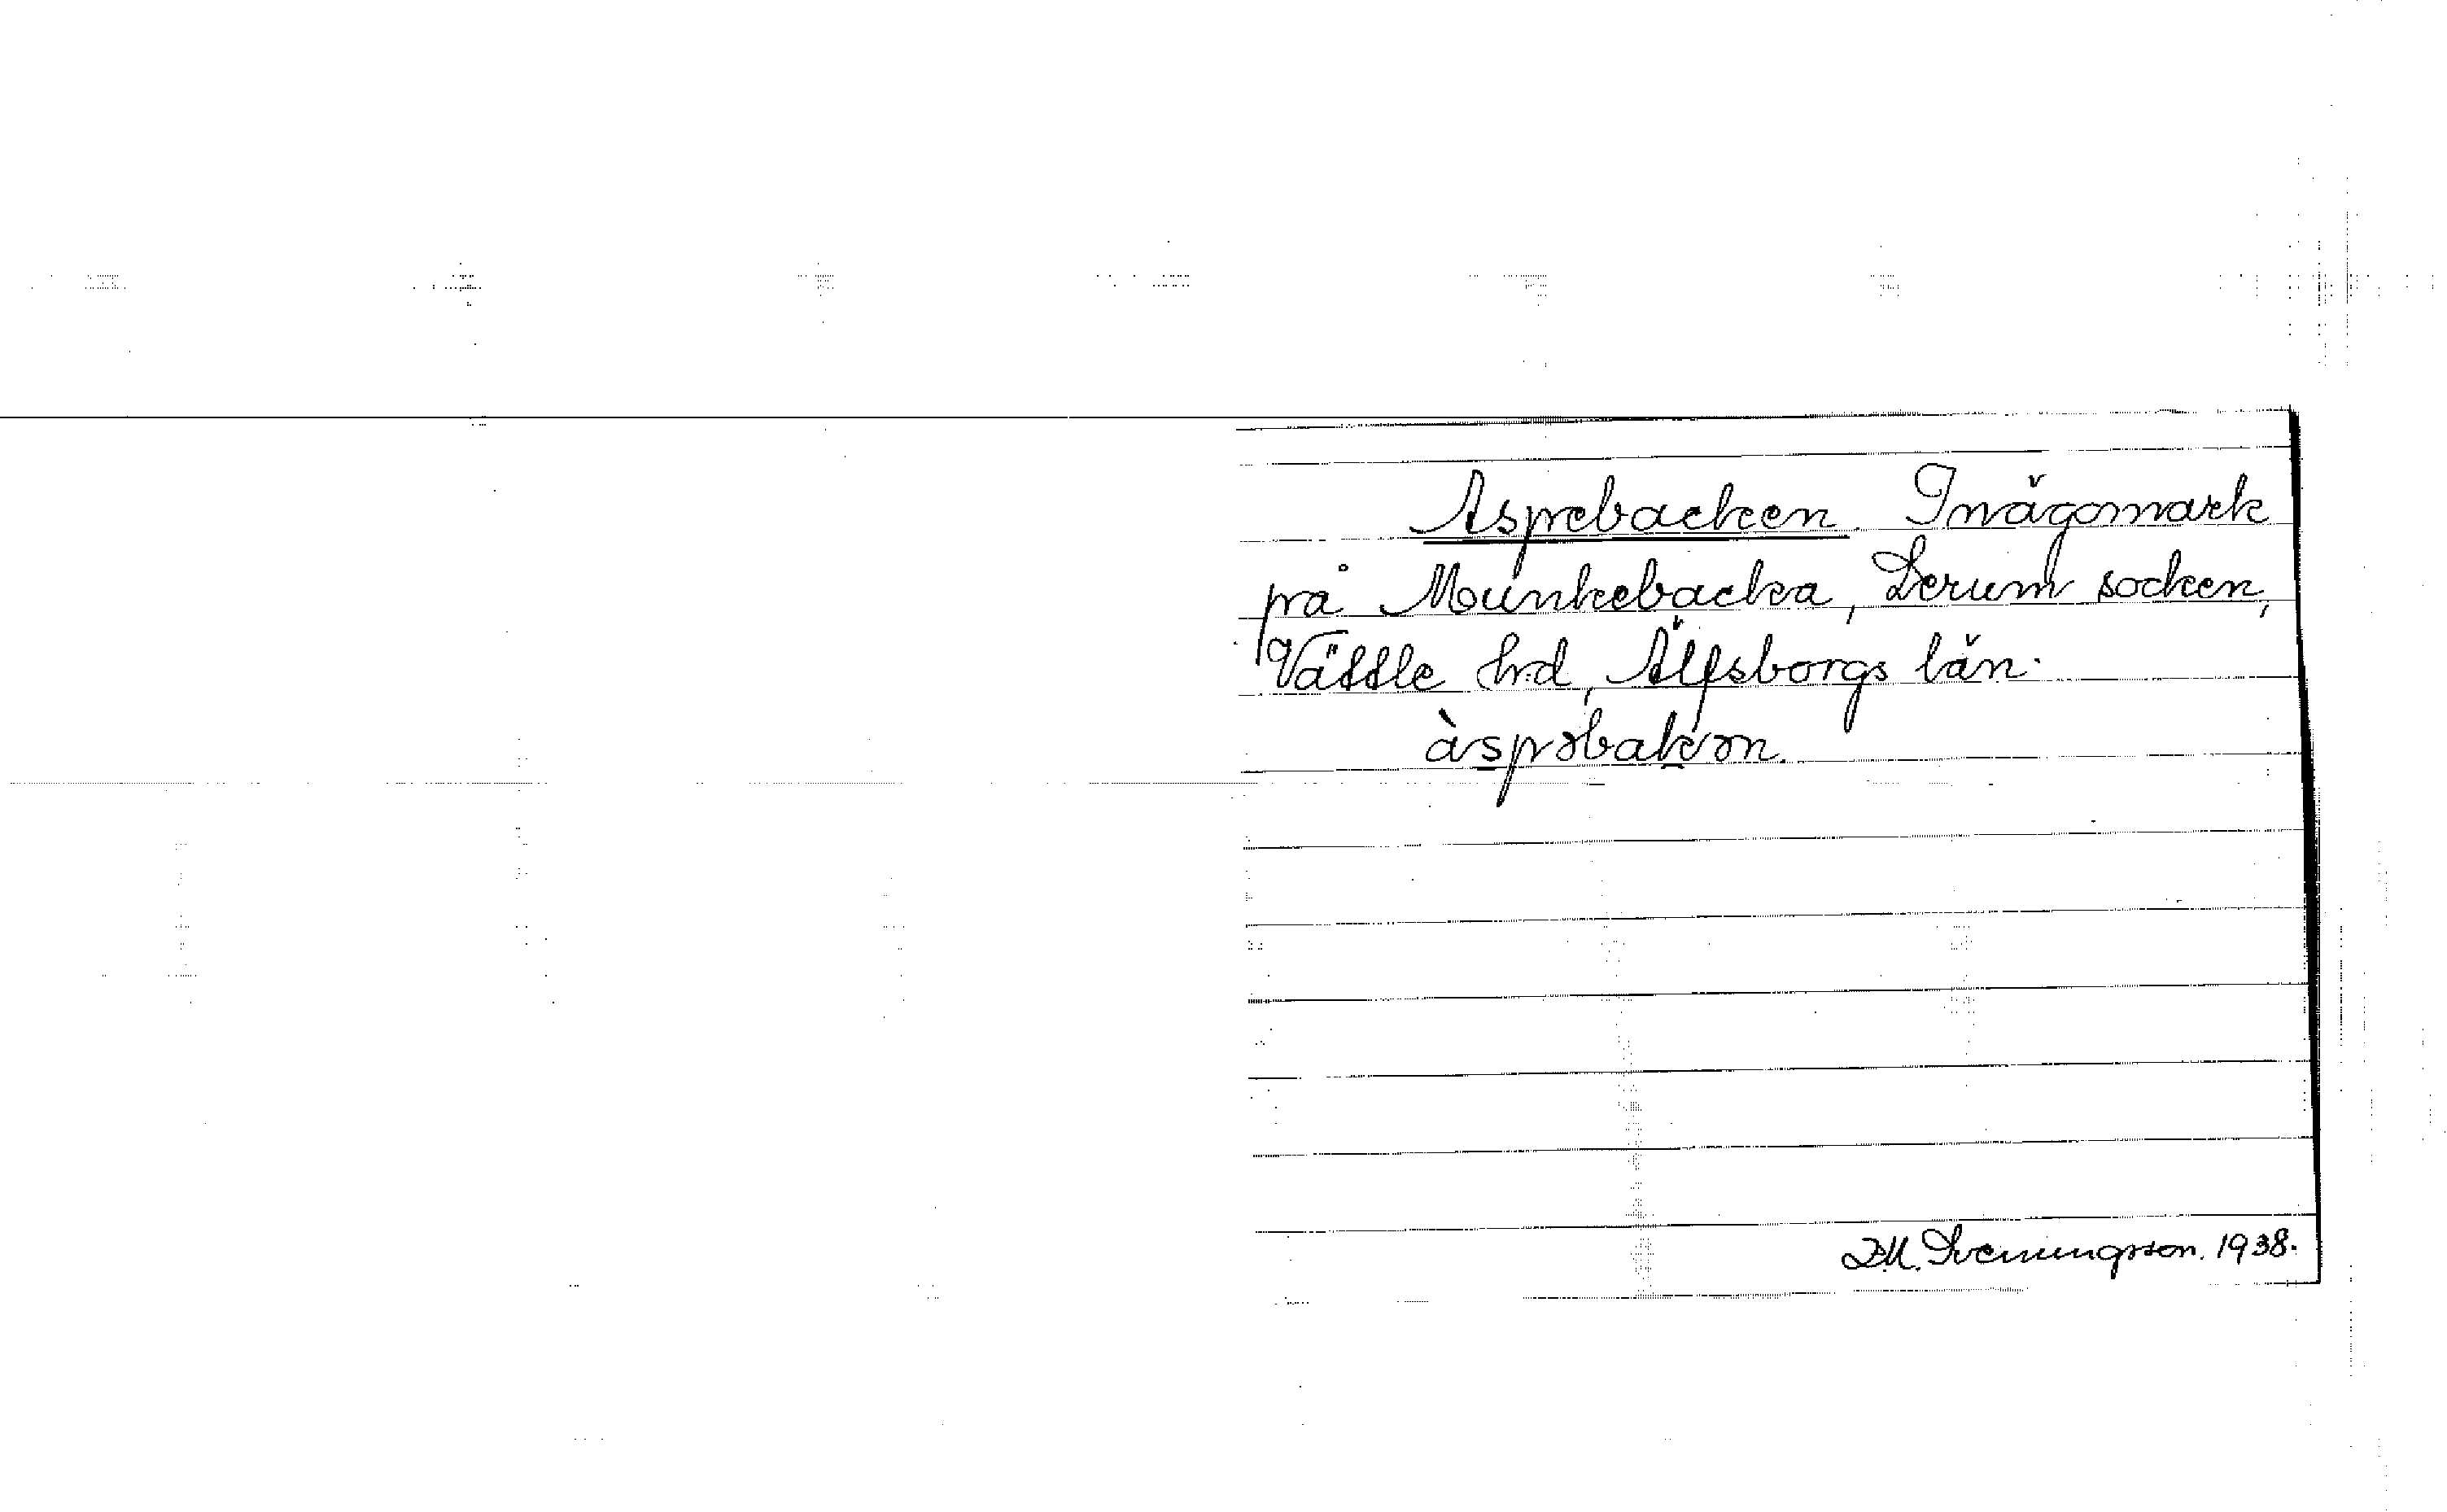 Aspebacken. Inägomark
på Munkebacka, Lerum socken,
Vättle hd, Älfsborgs län.
àspəbakən.
D.M. Svenningsson. 1938.